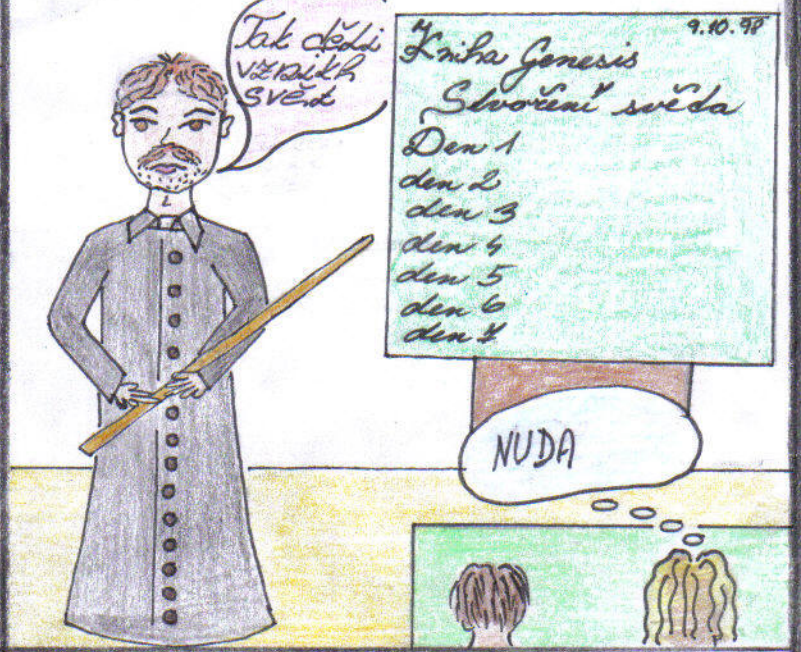 Tak dědi
vznikh
svět
9.10.98
Kniha Genesis
Stvoření světa
Den 1
den 2
den 3
den 4
den 5
den 6
den 7
NUDA